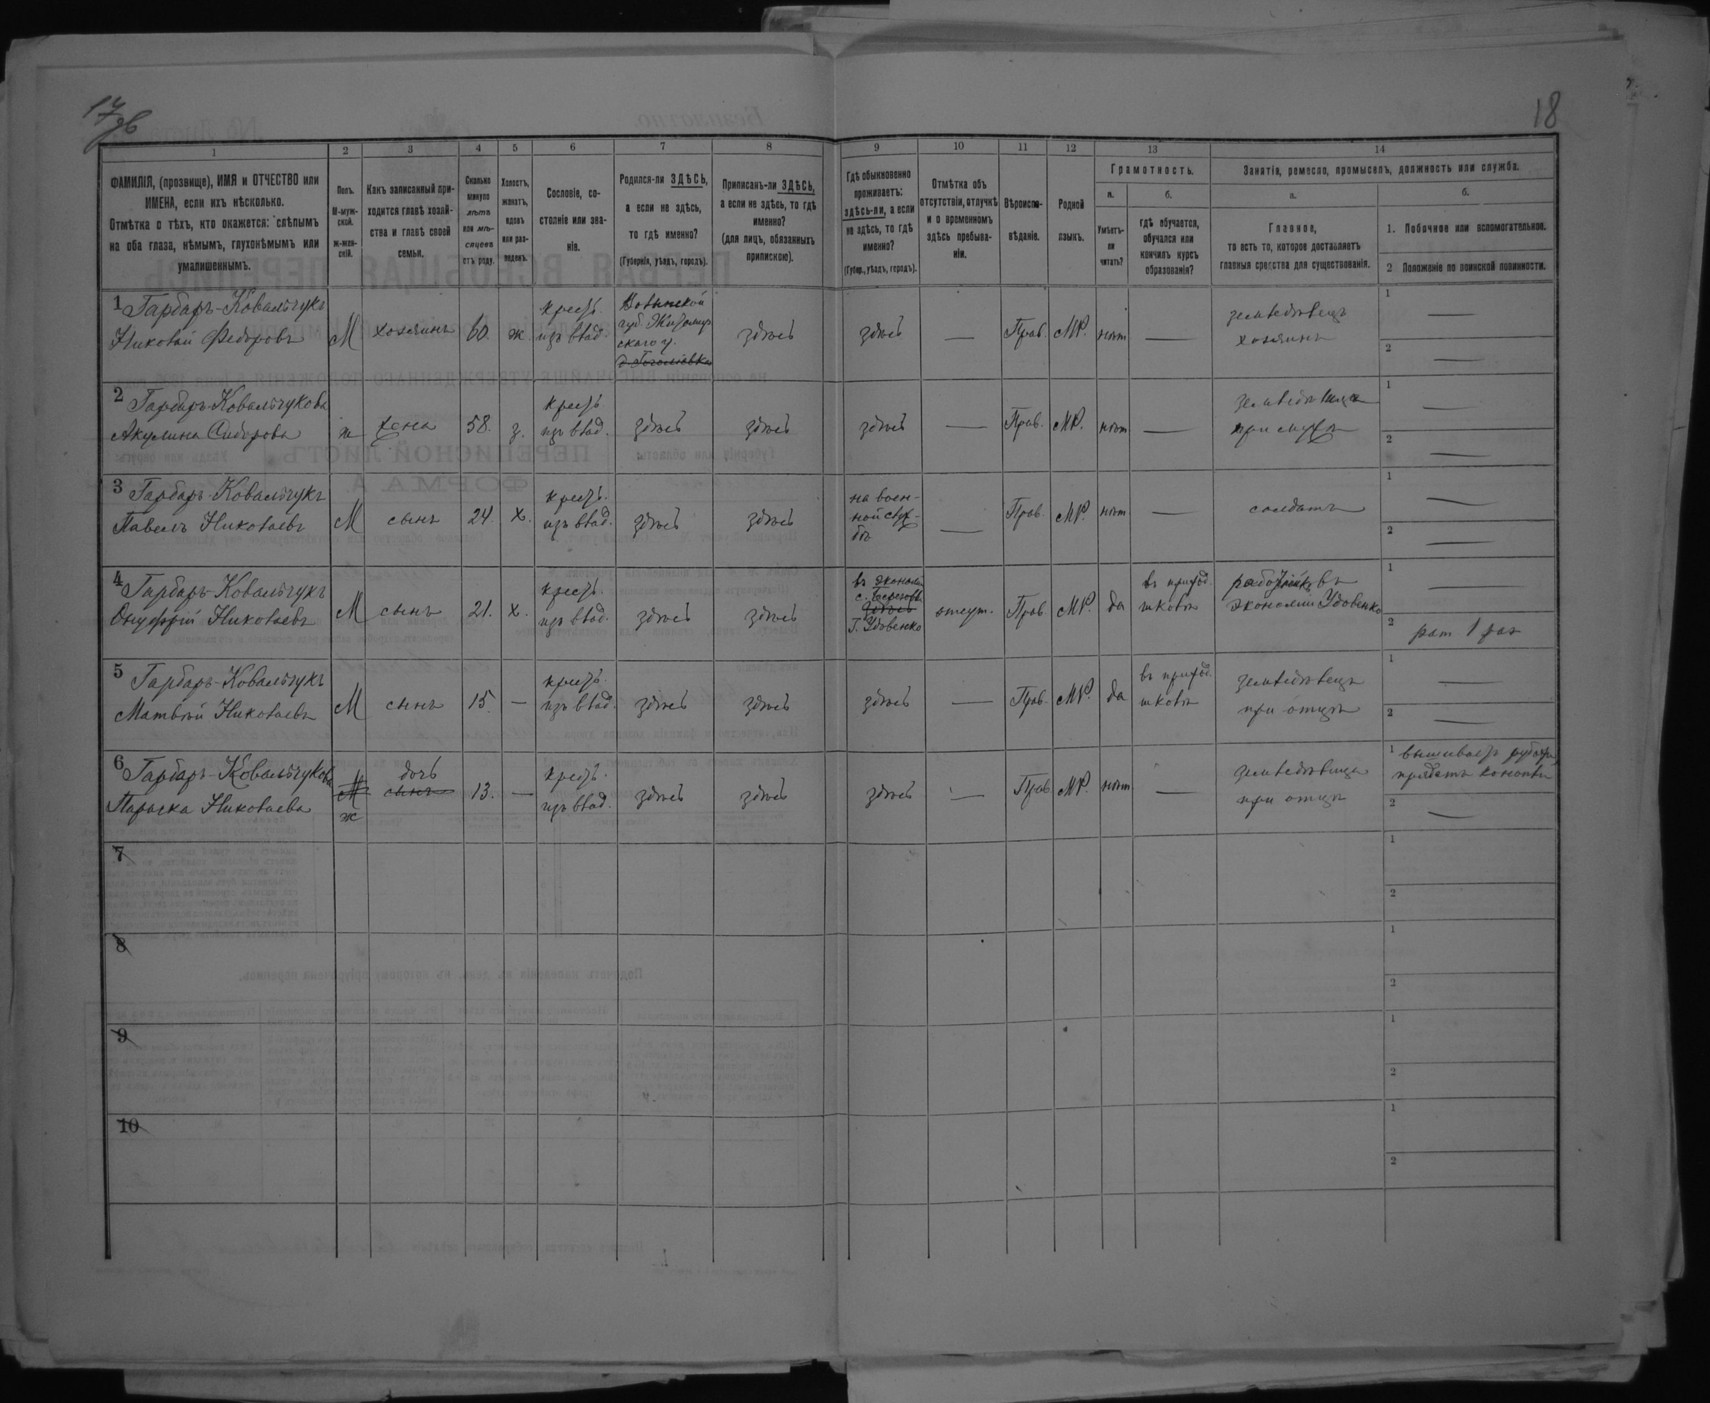 17об
18
1
2
3
4
5
6
7
8
9
10
11
12
13
14
ФАМИЛІЯ, (прозвище), ИМЯ и ОТЧЕСТВО или
ИМЕНА, если ихъ нѣсколько.
Отмѣтка о тѣхъ, кто окажется: слѣпымъ
на оба глаза, нѣмымъ, глухонѣмымъ или
умалишеннымъ.
Полъ.
М-муж-
ской.
ж-жен-
скій.
Какъ записанный при-
ходится главѣ хозяй-
ства и главѣ своей
семьи.
Сколько
минуло
лѣтъ
или мѣ-
сяцевъ
отъ роду.
Холостъ,
женатъ,
вдовъ
или раз-
веденъ.
Сословіе, со-
стояніе или зва-
ніе.
Родился-ли ЗДѢСЬ,
а если не здѣсь,
то гдѣ именно?
(Губернія, уѣздъ, городъ).
Приписанъ-ли ЗДѢСЬ,
а если не здѣсь, то гдѣ
именно?
(для лицъ, обязанныхъ
припискою).
Гдѣ обыкновенно
проживаетъ:
здѣсь-ли, а если
не здѣсь, то гдѣ
именно?
(Губер., уѣздъ, городъ).
Отмѣтка объ
отсутствіи, отлучкѣ
и о временномъ
здѣсь пребыва-
ніи.
Вѣроиспо-
вѣданіе.
Родной
языкъ.
Грамотность.
а.
Умѣетъ-
ли
читать?
б.
гдѣ обучается,
обучался или
кончилъ курсъ
образованія?
Занятіе, ремесло, промыселъ, должность или служба.
а.
Главное,
то есть то, которое доставляетъ
главныя средства для существованія.
б.
1. Побочное или вспомогательное.
2 Положеніе по воинской повинности.
1 Гарбаръ-Ковальчукъ
Николай Федоровъ
М
хозяинъ
60.
ж.
крест.
изъ влад.
Волынской
губ. Житомир
скаго у.
здѣсь
здѣсь
—
Прав.
МР.
нѣт
—
земледѣлецъ
хозяинъ
1 —
2 —
2 Гарбаръ-Ковальчукова
Акулина Сидорова
ж
жена
58.
з.
крест.
изъ влад.
здѣсь
здѣсь
здѣсь
—
Прав.
МР.
нѣт
—
земледѣлица
при мужѣ
1 —
2 —
3 Гарбаръ-Ковальчукъ
Павелъ Николаевъ
М
сынъ
24.
х.
крест.
изъ влад.
здѣсь
здѣсь
на воен-
ной служ-
бѣ
—
Прав.
МР.
нѣт
—
солдатъ
1 —
2 —
4 Гарбаръ-Ковальчукъ
Онуфрій Николаевъ
М
сынъ
21.
х.
крест.
изъ влад.
здѣсь
здѣсь
въ эконом
здѣсь
Г. Удовенко
отсут.
Прав.
МР.
да
въ приход.
школѣ
работникъ въ
экономіи Удовенко
1 —
2 рат 1 раз
5 Гарбаръ-Ковальчукъ
Матвѣй Николаевъ
М
сынъ
15.
—
крест.
изъ влад.
здѣсь
здѣсь
здѣсь
—
Прав.
МР.
да
въ приход.
школѣ
земледѣлецъ
при отцѣ
1 —
2 —
6 Гарбаръ-Ковальчукова
Параска Николаева
М
ж
дочь
сынъ
13.
—
крест.
изъ влад.
здѣсь
здѣсь
здѣсь
—
Прав
МР.
нѣт
—
земледѣлица
при отцѣ
1 вышиваетъ
прядетъ конопли
2 —
7
1
2
8
1
2
9
1
2
10
1
2